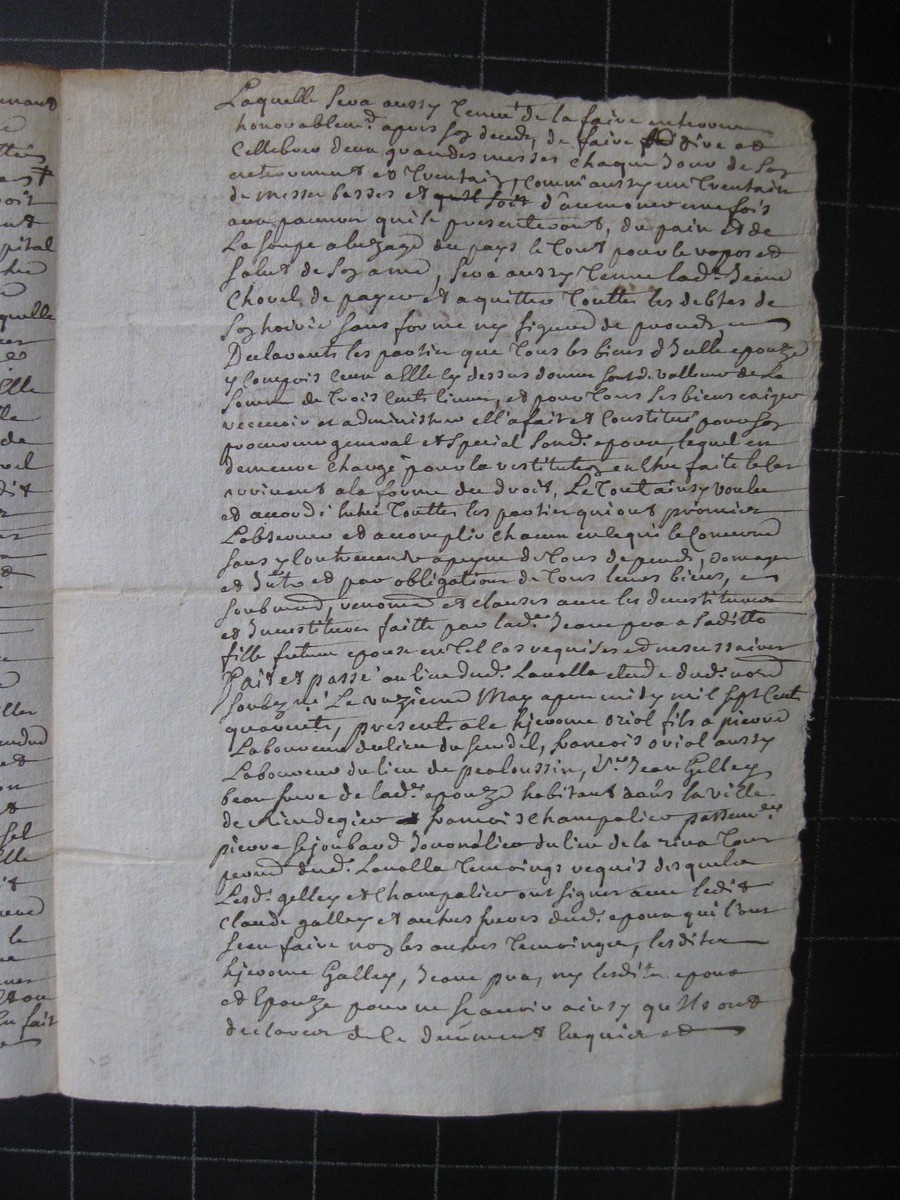 Laquelle sera aussy tenue de la faire enterrer
honorablemt. apres son deceds, de faire dire et
Cellebrer deux grandes messes chaque Jour de son
enterrement et trentain, comm'aussy un trentain
de messes basses et d'aumoner une fois
aux pauvres qui se presenteront, du pain et de
La soupe a l'uzage du pays le tout pour le repos et
salut de son ame, sera aussy tenue lad. Jeane
Chovel de payer et aquitter touttes les debtes de
son hoirie sans forme ny figure de proces,
Declarants les parties que tous les biens d'Icelle epouze
y compris ceux a Elle cy dessus donnes sont de valleur de La
somme de trois Cent livres, et pour tous ses biens exiger
recevoir et administrer ell'a fait et Constitué pour son
procureur general et special sond. epoux, lequel en
demeure chargé pour la restitution en Etre faite le Cas
arrivant a la forme du droit, Le tout ainsy voulu
et accordé entre touttes les parties qui ont promis
L'observer et accomplir chacun en ce qui le Concerne
sans y Contrevenir a peyne de tous depends, domages
et Intts. et par obligation de tous leurs biens,
soubmions, renonons et clauses avec les devestitures
et Investitures faitte par lad. Jeane pra a saditte
fille future epouse en tel Cas requises et necessaires
Fait et passé au lieu dud. Lavalla etude dud. nore.
soubzné Le unzieme May apres midy mil sept Cent
quarente, presents a ce hjerome oriol fils a pierre
Laboureur du lieu du , francois orial aussy
Laboureur du lieu de pealoussin, Sr. Jean Galley
beau frere de lad. epouze habitant dans la ville
de Riendegier francois Champalier passemier
pierre hjoubard du lieu de la riva tous
peroisse dud. Lavalla temoings requis desquels
Lesd. galley et Champalier ont signes avec ledit
Claude galley et autres freres dud. epoux qui l'ont
sceu faire non les autres temoingts, lesdites
hjerome Galley, Jeane pra, ny lesdits epoux
et Epouze pour ne scavoir ainsy qu'ils ont
declarer de ce deuement Enquis et